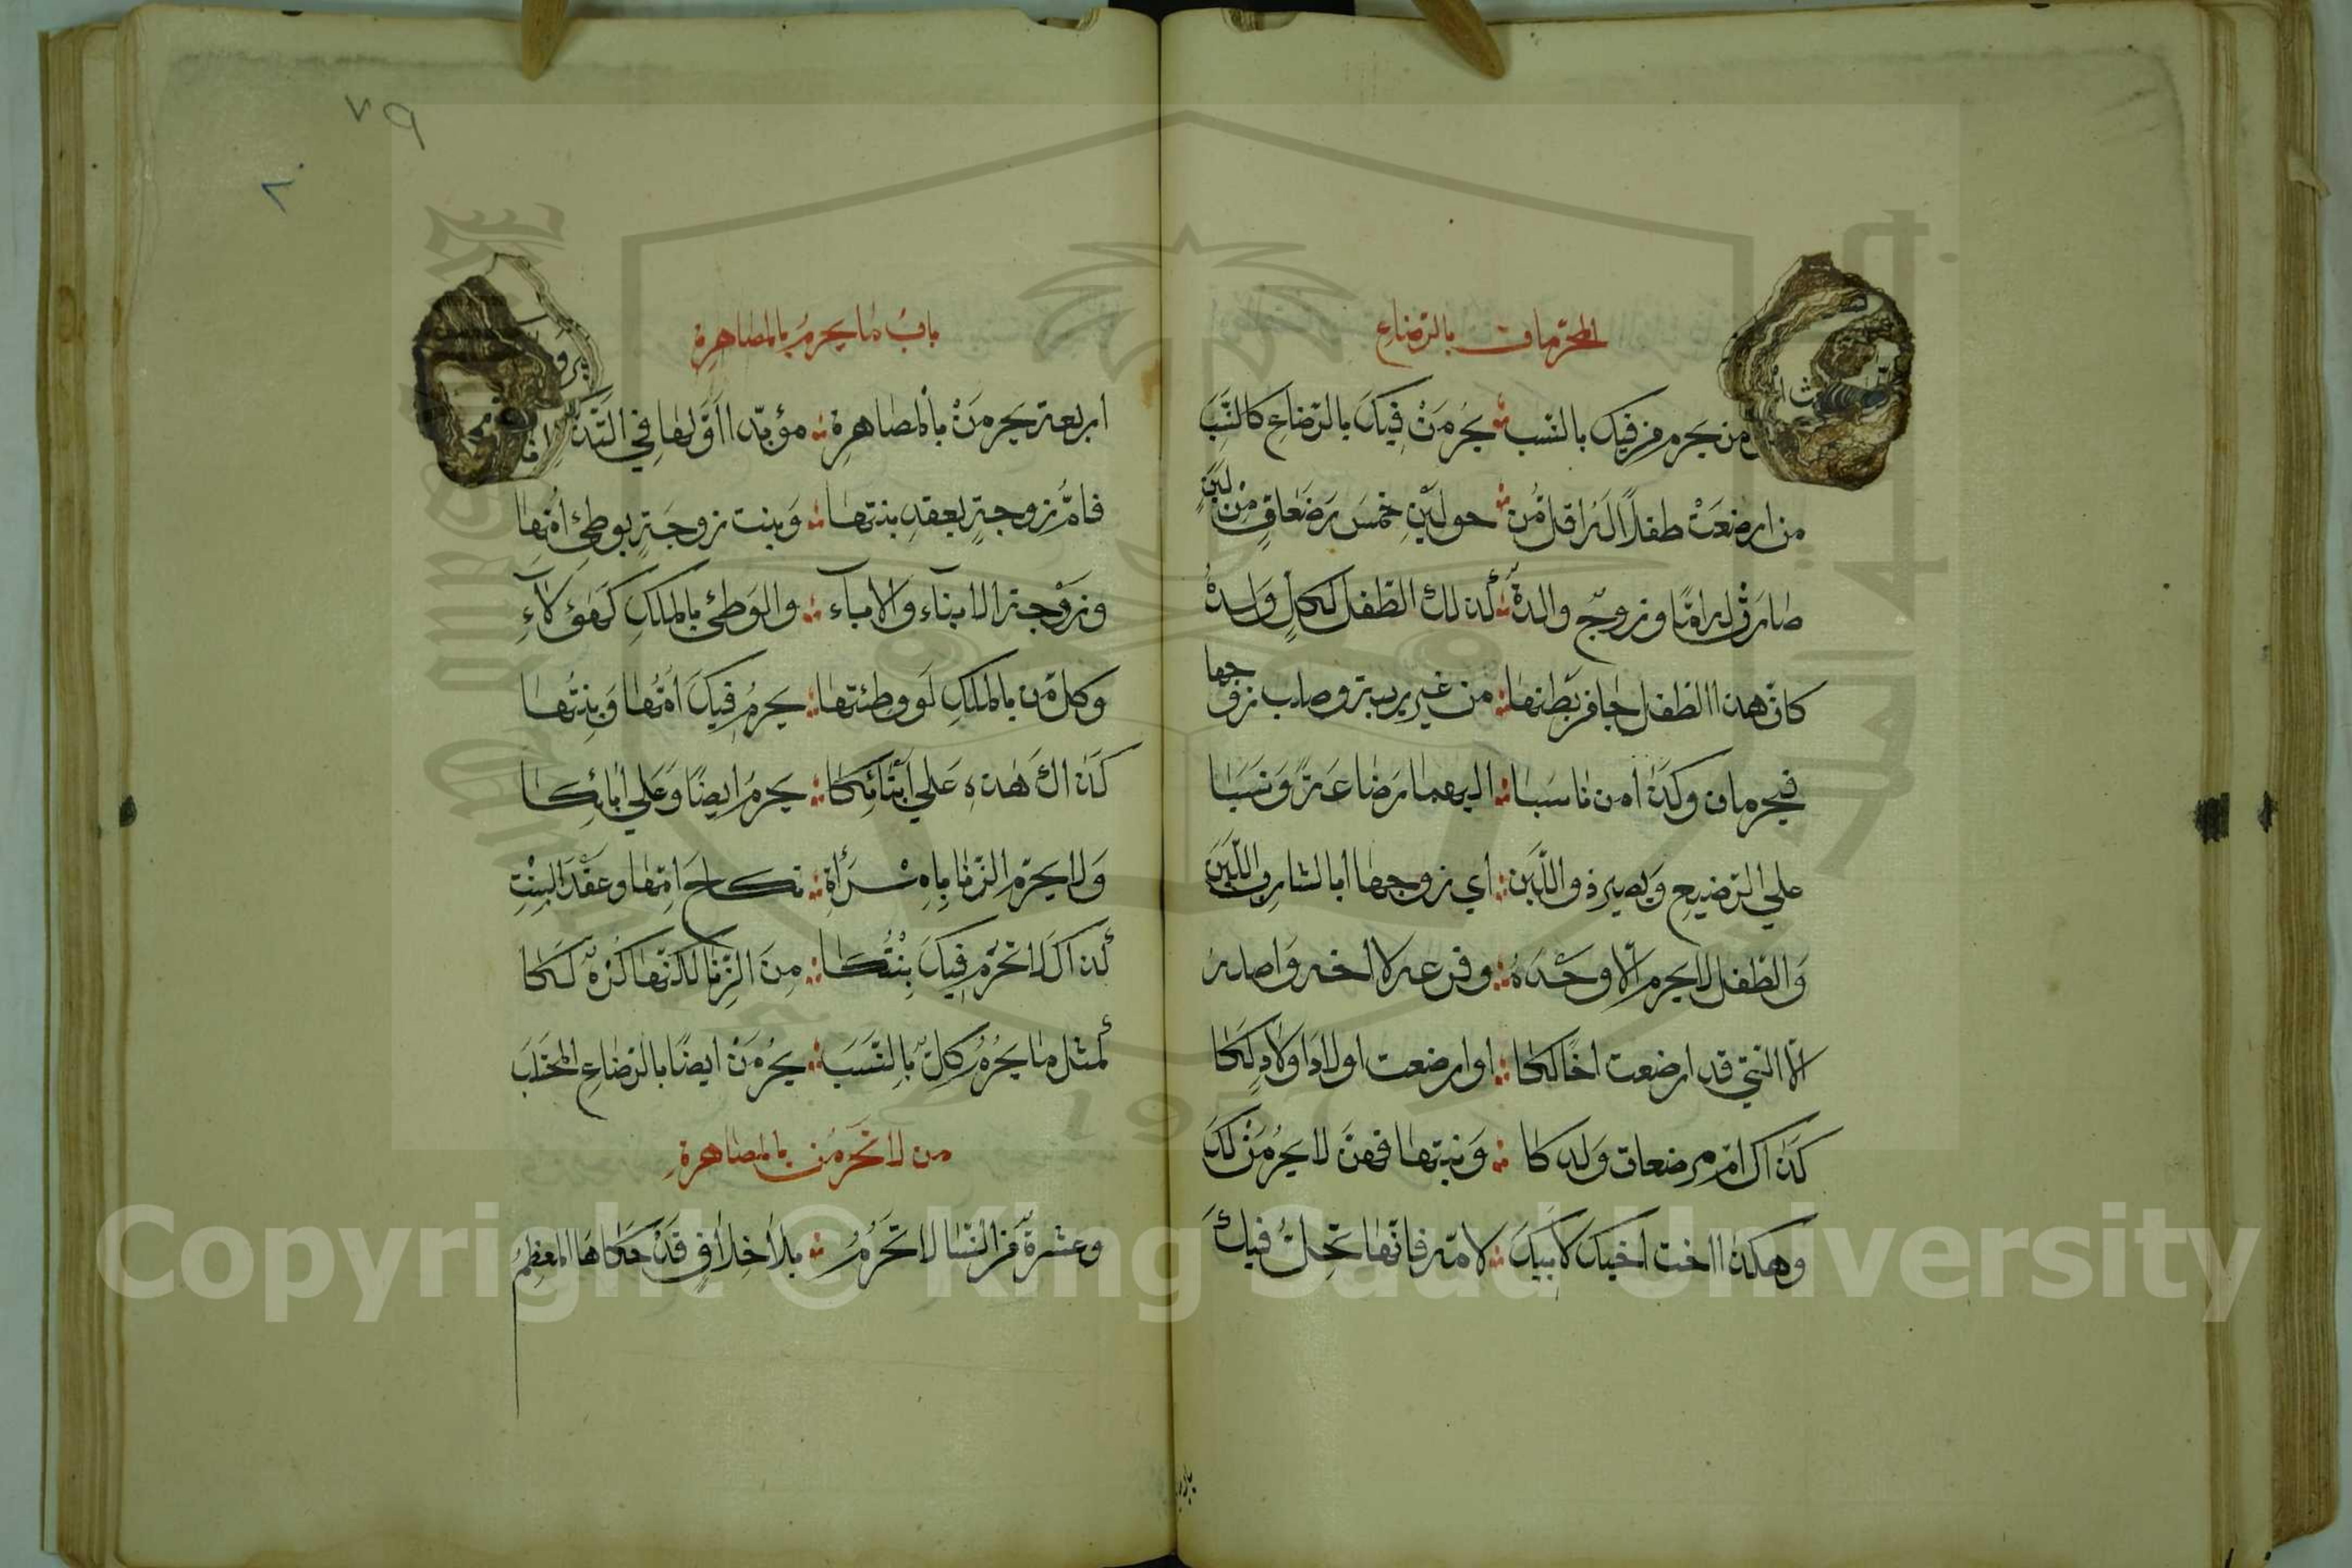 المحرمات بالرضاع
من يحرم من فيك بالنسب يحرمن فيك بالرضاع كالنسب
من ارضعت طفلا له اقل من حولين خمس رضعات من لبن
صارت له اما وزوج والده كذلك الطفل لكل ولده
كان هذا الطفل جا من بطنها من غير ريبة وصلب زوجها
فيحرمان وكذا من ناسبا اليهما رضاعة ونسبا
علي الرضيع ويصير ذو اللبن اي زوجها ابا لشارب اللبن
والطفل لا يحرم الا وحده وفرعه لا اخه واصله
الا التي قد ارضعت اخا لكا او ارضعت اولاد اولاد لكا
كذاك ام مرضعات ولدكا وبنتها فهن لا يحرمن لك
وهكذا اخت اخيك لابيك لامه فانها تحل فيك
٧٩
٨٠
باب ما يحرم بالمصاهرة
اربعة يحرمن بالمصاهرة مؤبدا اولها في
فام زوجة بعقد بنتها وبنت زوجة بوطئ امها
وزوجة الابناء والاباء والوطئ بالملك كهؤلاء
وكل من بالملك لو وطئتها يحرم فيك امها وبنتها
كذاك هذه علي ابنائكا يحرم ايضا وعلي ابائكا
ولا يحرم الزنا بامرأة نكاح امها وعقد البنت
كذاك لا تحرم فيك بنتكا من الزنا لكنها كره لكا
كمثل ما يحرم كل بالنسب يحرمن ايضا بالرضاع المجتلب
من لا تحرمن بالمصاهرة
وعشرة من النسا لا تحرم بلا خلاف قد حكاها المعظم
Copyright © King Saud University
1957